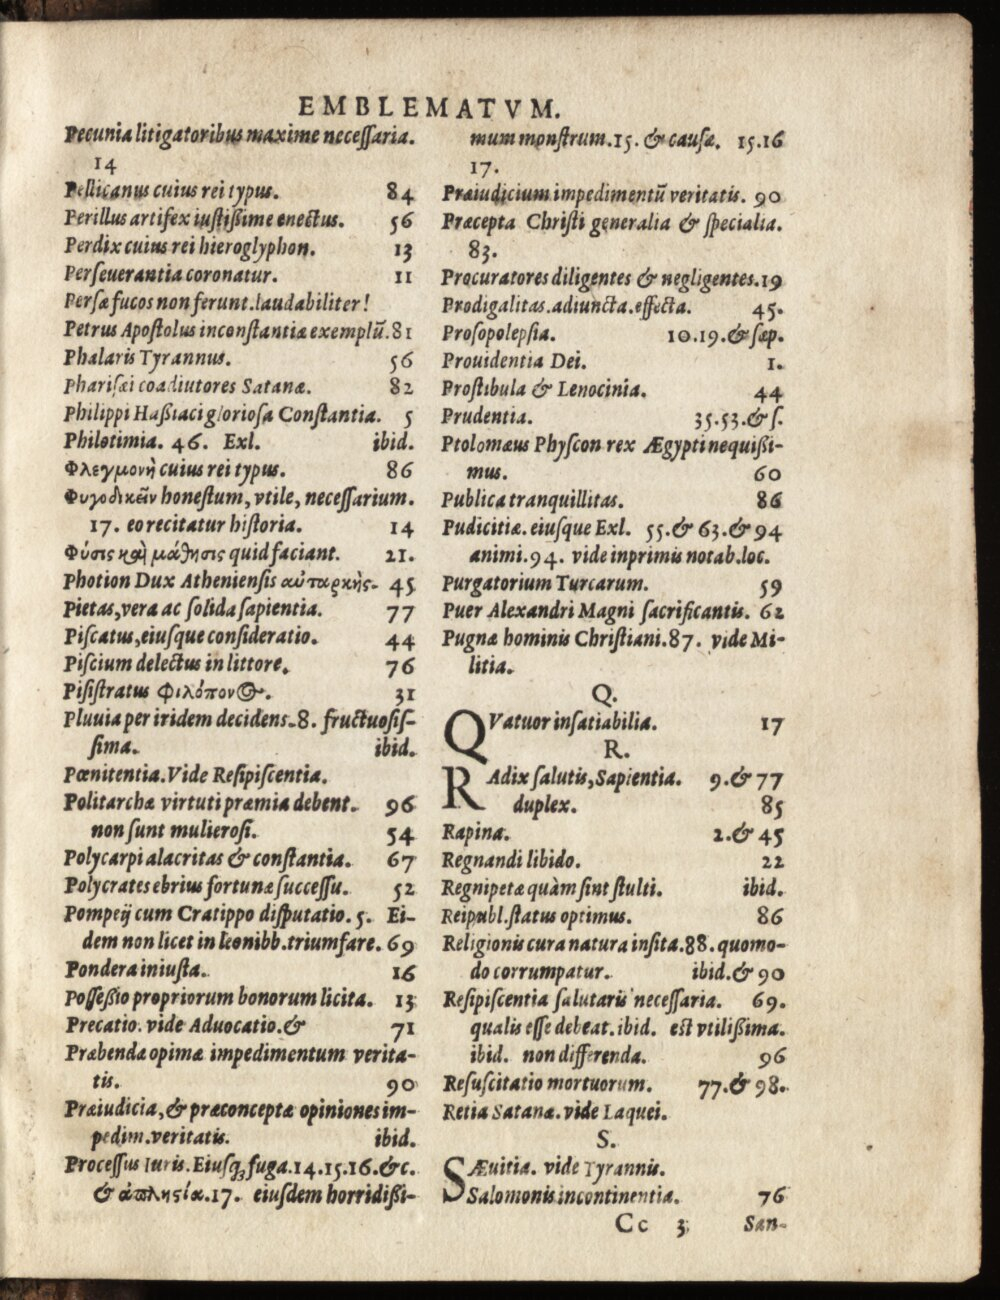 EMBLEMATVM.
Pecunia litigatoribus maxime necessaria.
14
Pellicanus cuius rei typus. 84
Perillus artifex iustißime enectus. 56
Perdix cuius rei hieroglyphon. 13
Perseuerantia coronatur. 11
Persæ fucos non ferunt. laudabiliter!
Petrus Apostolus inconstantiæ exemplũ. 81
Phalaris Tyrannus. 56
Pharisæi coadiutores Satanæ. 82
Philippi Haßiaci gloriosa Constantia. 5
Philotimia. 46. Exl. ibid.
Φλεγμονὴ cuius rei typus. 86
Φυγοδικεῖν honestum, vtile, necessarium.
17. eo recitatur historia. 14
Φύσις καὶ μάθησις quid faciant. 21.
Photion Dux Atheniensis αὐταρκὴς. 45
Pietas, vera ac solida sapientia. 77
Piscatus, eiusque consideratio. 44
Piscium delectus in littore. 76
Pisistratus Φιλόπονος. 31
Pluuia per iridem decidens. 8. fructuosis-
sima. ibid.
Pœnitentia. Vide Resipiscentia.
Politarchæ virtuti præmia debent. 96
non sunt mulierosi. 54
Polycarpi alacritas & constantia. 67
Polycrates ebrius fortunæ successu. 52
Pompeij cum Cratippo disputatio. 5. Ei-
dem non licet in leonibb. triumfare. 69
Pondera iniusta. 16
Posseßio propriorum bonorum licita. 13
Precatio. vide Aduocatio. & 71
Præbenda opimæ impedimentum verita-
tis. 90
Præiudicia, & præconceptæ opiniones im-
pedim. veritatis. ibid.
Processus Iuris. Eiusq; fuga. 14. 15. 16. &c.
& ἀπλησία. 17. eiusdem horridißi-
mum monstrum. 15. & causæ. 15. 16
17.
Præiudicium impedimentũ veritatis. 90
Præcepta Christi generalia & specialia.
83.
Procuratores diligentes & negligentes. 19
Prodigalitas. adiuncta. effecta. 45.
Prosopolepsia. 10. 19. & sæp.
Prouidentia Dei. 1.
Prostibula & Lenocinia. 44
Prudentia. 35. 53. & s.
Ptolomæus Physcon rex Ægypti nequißi-
mus. 60
Publica tranquillitas. 86
Pudicitiæ. eiusque Exl. 55. & 63. & 94
animi. 94. vide inprimis notab. loc.
Purgatorium Turcarum. 59
Puer Alexandri Magni sacrificantis. 62
Pugnæ hominis Christiani. 87. vide Mi-
litia.
Q.
QVatuor insatiabilia. 17
R.
RAdix salutis, Sapientia. 9. & 77
duplex. 85
Rapinæ. 2. & 45
Regnandi libido. 22
Regnipetæ quàm sint stulti. ibid.
Reipubl. status optimus. 86
Religionis cura natura insita. 88. quomo-
do corrumpatur. ibid. & 90
Resipiscentia salutaris necessaria. 69.
qualis esse debeat. ibid. est vtilißima.
ibid. non differenda. 96
Resuscitatio mortuorum. 77. & 98.
Retia Satanæ. vide Laquei.
S.
SÆuitia. vide Tyrannis.
Salomonis incontinentia. 76
Cc 3 San-